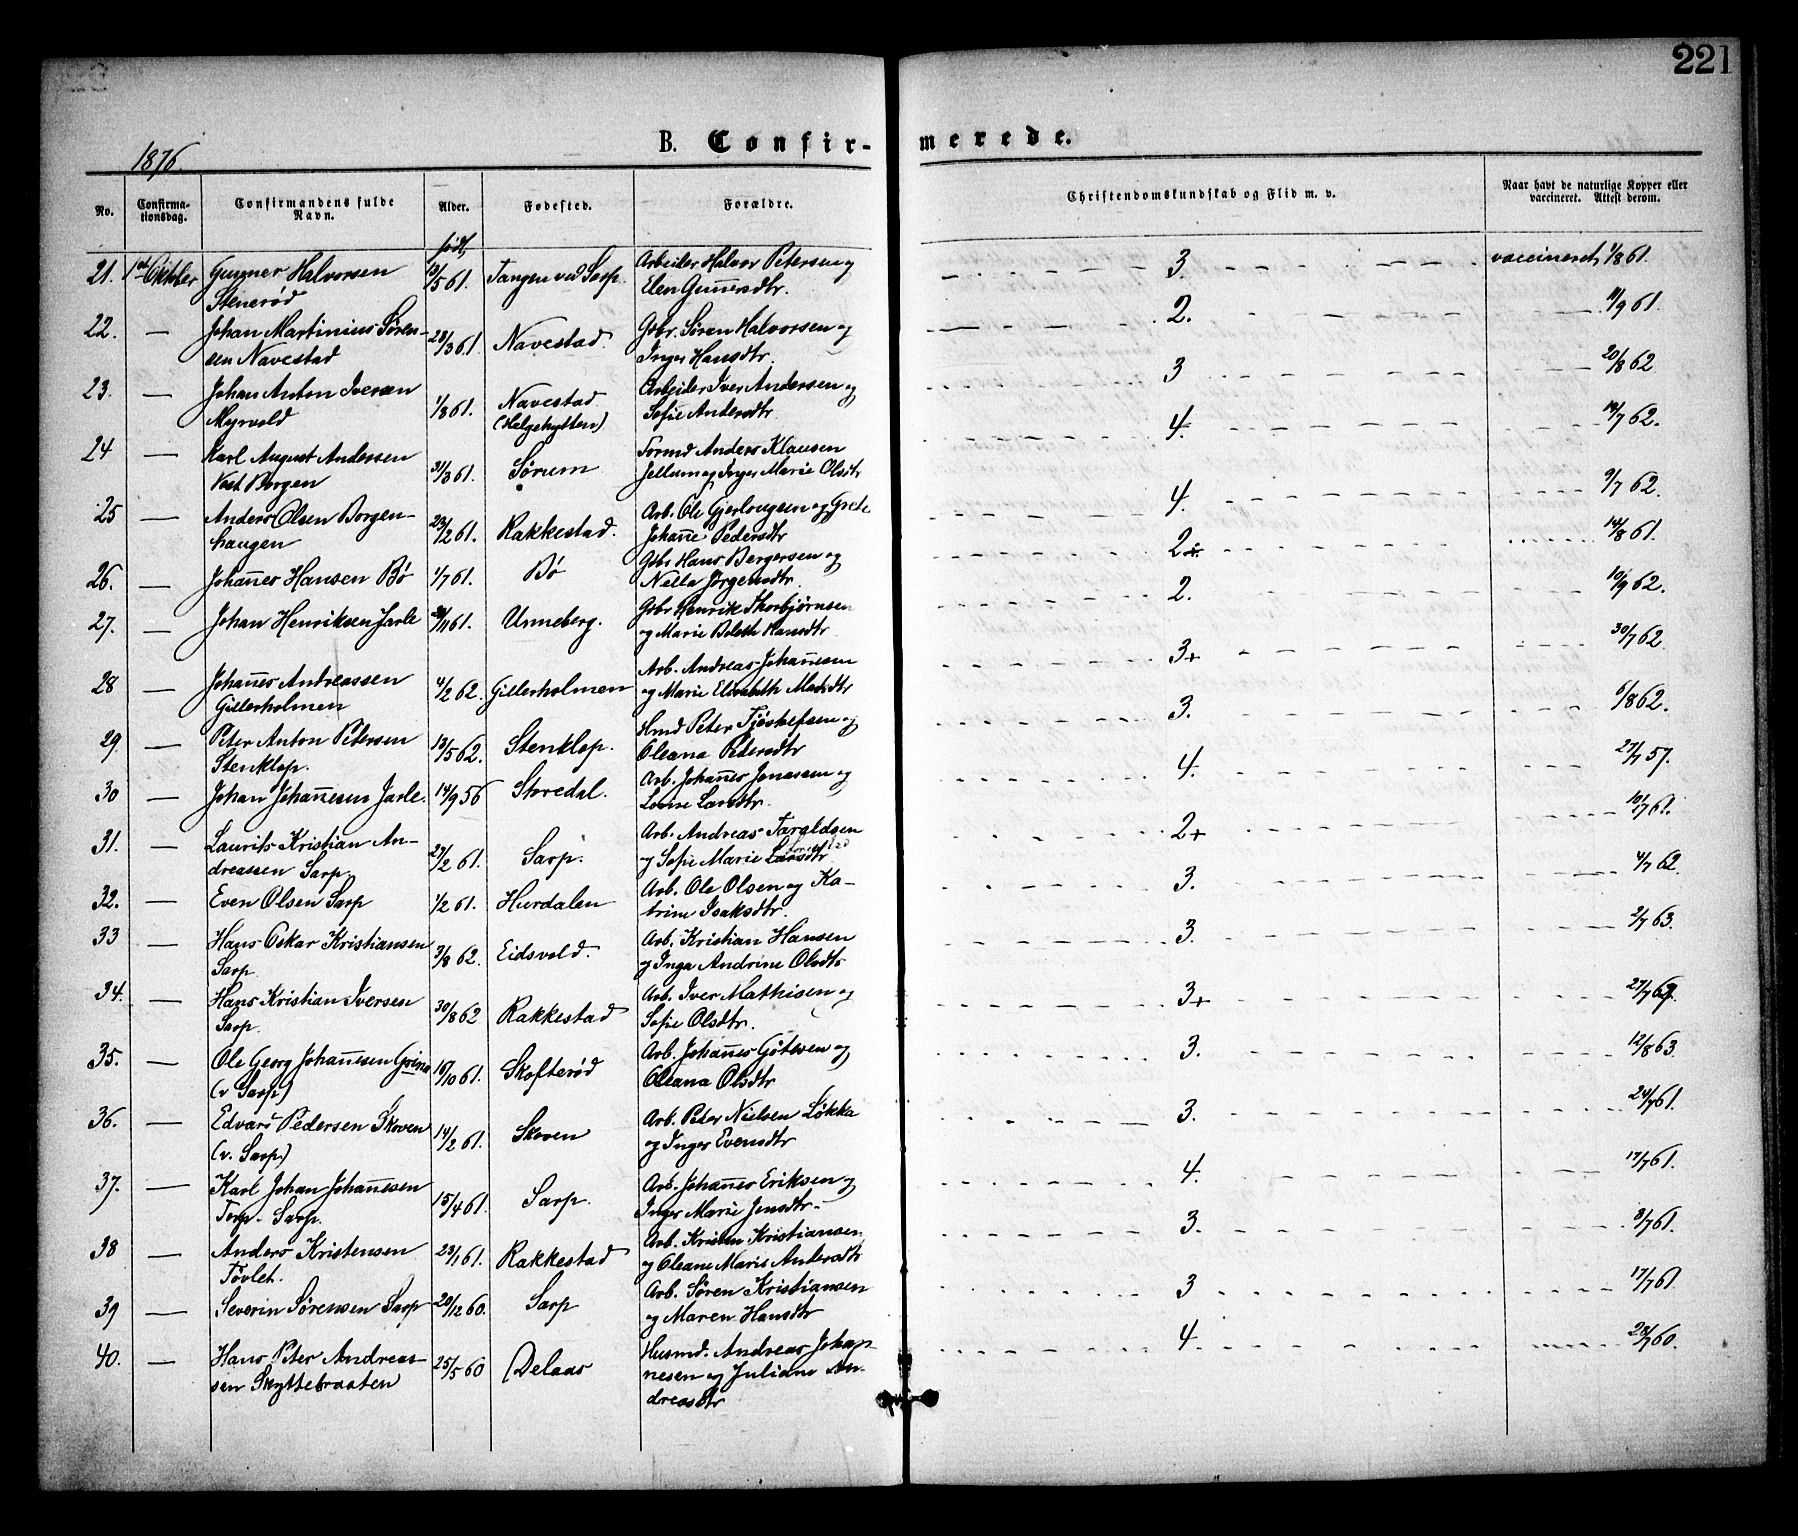 221
1876.
B. Confir- merede.
No. Confirmationsdag. Confirmandens fulde Navn. Alder. Fødested. Forældre. Christendomskundskab og Flid m. v. Naar havt de naturlige Kopper eller vaccineret. Attest derom.
født
21. 1st Oktober Gunner Halvorsen 13/5 61. Tangen ved Sarp. Arbeider Halvor Petersen og 3. vaccineret 1/8 61.
Stenerød Elen Gunersdtr.
22. — Johan Martinius Søren- 28/3 61. Navestad. Gbr. Søren Halvorsen og 2. 11/9 61.
sen Navestad Inger Hansdtr.
23. — Johan Anton Iversen 1/8 61. Navestad Arbeider Iver Andersen og 3 20/8 62
Myrvold (Helgehytten) Sofie Andersdtr.
24 — Karl August Andersen 31/3 61. Sørum Formd Anders Klausen 4. 19/7 62.
Vest Borgen Jellum og Inger Marie Olsdtr
25 — Anders Olsen Borgen- 23/2 61. Rakkestad. Arb. Ole Gjerlougsen og Grete 4. 9/7 62.
haugen Johanne Pedersdtr
26. — Johannes Hansen Bø 1/7 61. Bø Gbr Hans Bergersen og 2+. 14/8 61.
Nella Jørgensdtr.
27. — Johan Henriksen Jarle 11 61. Unneberg. Gbr Henrik Thorbjørnsen 2. 10/9 62.
og Marie Hansdtr
28 — Johannes Andreassen 4/2 62. Gillerholmen Arb. Andreas Johannesen 3+ 30/7 62.
Gillerholmen og Marie Elisabeth Madsdtr
29 — Peter Anton Petersen 13/5 62. Stenklep. Hmd Peter Tjøstelfsen og 3. 6/8 62.
Stenklep. Oleana Petersdtr
30 — Johan Johannesen Jarle. 14/9 56 Storedal. Arb. Johannes Jonassen og 4. 27/7 57.
Lovise Larsdtr.
31. — Laurits Kristian An- 27/2 61. Sarp. Arb. Andreas Taraldsen 2+ 10/7 61.
dreassen Sarp. og Sofie Marie Larsdtr
32. — Even Olsen Sarp 1/2 61. Hurdalen Arb. Ole Olsen og Ka- 3. 4/7 62.
trine Isaksdtr.
33 — Hans Oskar Kristiansen 3/8 62. Eidsvold. Arb. Kristian Hansen 3. 2/7 63.
Sarp. og Inga Andrine Olsdtr
34. — Hans Kristian Iversen 30/8 62 Rakkestad Arb. Iver Mathisen og 3+ 27/7 62.
Sarp. Sofie Olsdtr.
35. — Ole Georg Johannesen Grina 16/10 61. Skofterød Arb. Johannes Götesen og 3. 12/8 63.
(v Sarp) Oleana Olsdtr
36. — Edvard Pedersen Skoven 14/2 61. Skoven Arb. Peter Nielsen Løkka 3. 24/7 61.
(v. Sarp) og Inger Evensdtr
37. — Karl Johan Johannesen 15/4 61. Sarp. Arb. Johannes Eriksen og 4. 17/7 61.
Torp. Sarp. Inger Marie Jensdtr.
38 — Anders Kristensen 23/1 61. Rakkestad Arb. Kristen Kristiansen 3. 3/7 61.
Tøvlet. og Oleane Marie Andersdtr
39 — Severin Sørensen Sarp 20/12 60. Sarp Arb. Søren Kristiansen 3 17/7 61.
og Maren Hansdtr
40. — Hans Peter Andreas- 25/5 60 Delaas Husmd. Andreas Johan- 4. 28/7 60.
sen Skyttebraaten nesen og Juliane An-
dreasdtr